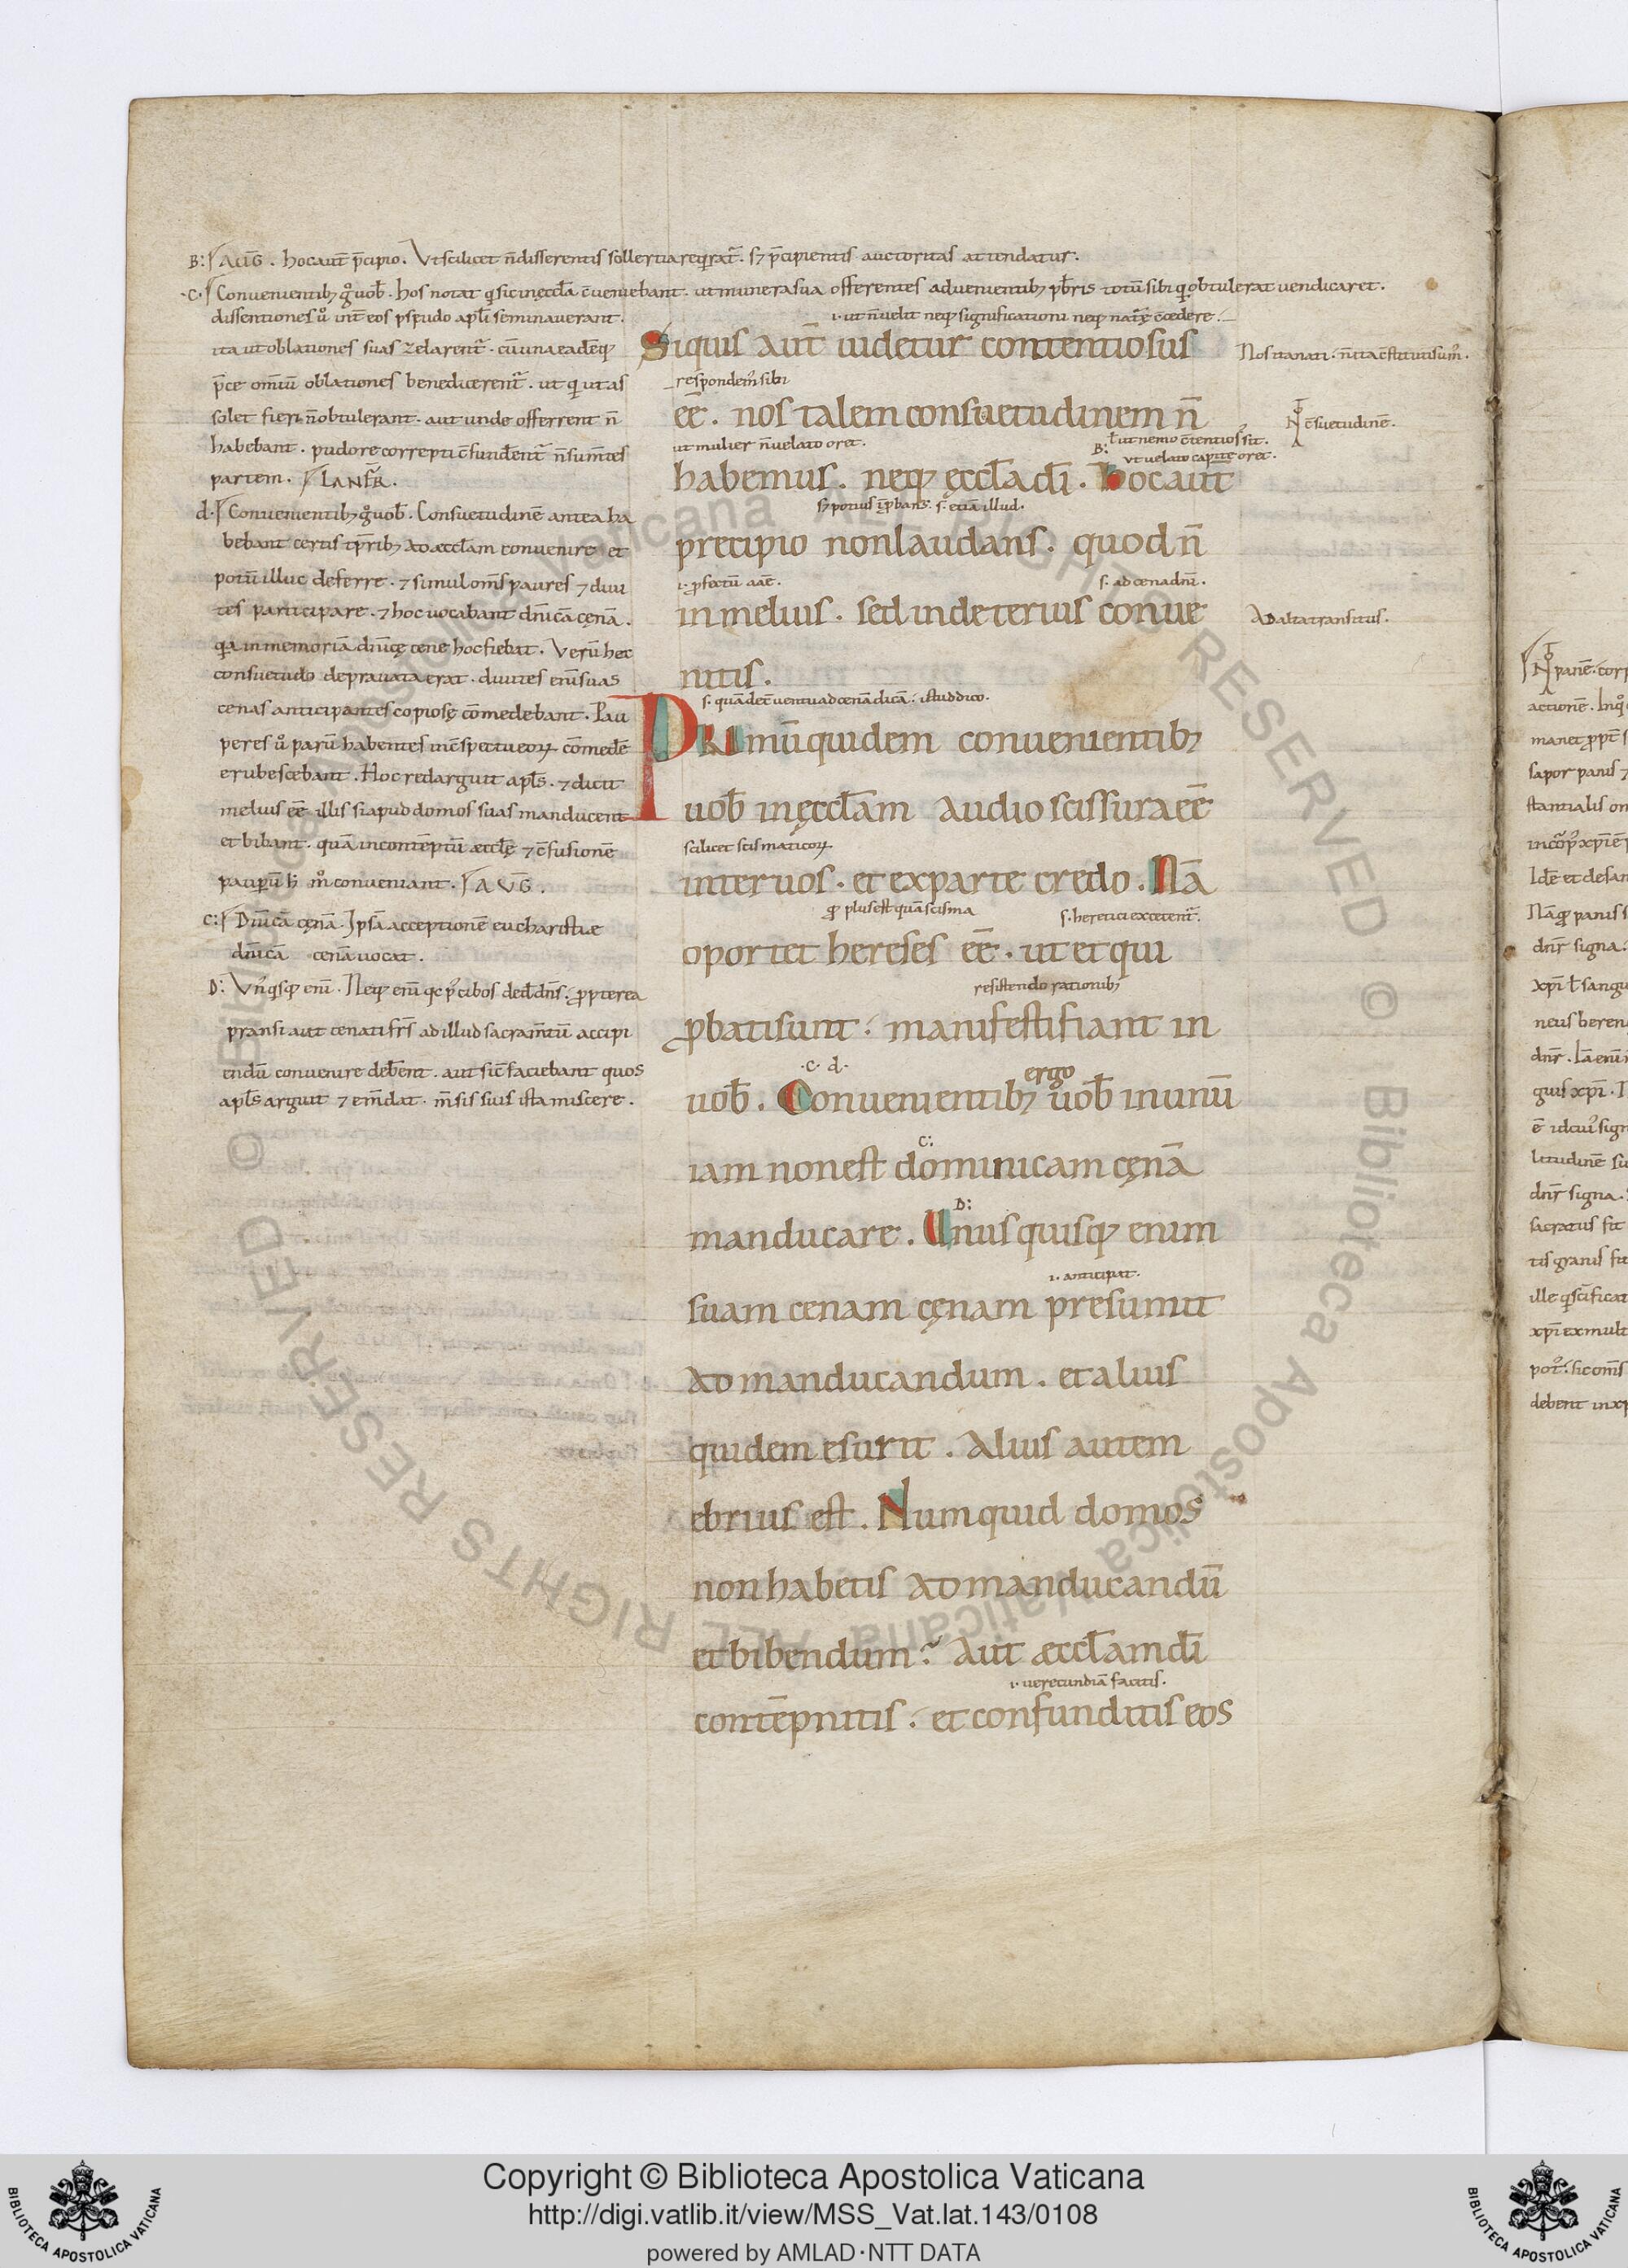 B: AUG̅. hoc aut̅ p̅cipio. Ut scilicet n̅ disserentis sollertia requirat᷑. s; p̅cipientis auctoritas attendatur.
·c· Convenientib; g̊ uob̅. hos notat qi sic in ęccl̅a c̅veniebant. ut munera sua offerentes advenientib; pb̅ris totu̅ sibi qi obtulerat vendicaret.
dissentiones ů int̅ eos pseudo apl̅i seminaverant.
ita ut oblationes suas zelarent᷑. cu̅ una eade̅q;
p̅ce om̅iu̅ oblationes benedicerent᷑. ut qi ut as
solet fieri n̅ obtulerant. aut unde offerrent n̅
habebant. pudore correpti c̅fundent᷑ n̅ sum̅tes
partem. LANFR̅.
d· Convenientib; g̊ uob̅. Consuetudine̅ antea ha
bebant certis tp̅rib; ad æccl̅am convenire et
potu̅ illuc deferre. ⁊ simul om̅s paup̅es ⁊ diui
tes participare. ⁊ hoc uocabant dn̅ica̅ cęna̅.
qia in memoria̅ dn̅icę cene hoc fiebat. Veru̅ hec
consuetudo depravata erat. divites eni̅ suas
cenas anticipantes copiosę co̅medebant. Pau
peres ů paru̅ habentes in c̅spectu eoꝝ co̅mede̅
erubescebant. Hoc redarguit apl̅s. ⁊ dicit
melius ee̅ illis si apud domos suas manducent
et bibant. qua̅ in conte̅ptu̅ æccl̅ę ⁊ c̅fusione̅
pauperu̅ h̅ m̊ conveniant. AUG̅.
C: Dn̅ica̅ cęna̅. Ipsa̅ acceptione̅ eucharistiæ
dn̅ica̅ cena̅ uocat.
D: Un̅qisq; eni̅. Neq; eni̅ qc p̅ cibos dedit dn̅s. ꝓpterea
pransi aut cenati fr̅s ad illud sacram̅tu̅ accipi
endu̅ convenire deb̅ent. aut sic̅ faciebant quos
apl̅s arguit ⁊ em̅dat. m̅sis suis ista miscere.
.i. ut n̅ velit neq; significationi neq; naturę c̅cedere.
Siquis aut̅ uidetur contentiosus
Nos ita nati. n̅ ita c̅stituti sum᷒.
respondem᷒ sibi
ee̅. nos talem consuetudinem n̅
N c̅suetudine̅.
ut mulier n̅ velato oret.
B: l̅ ut nemo c̅tentios᷒ sit.
ut velato capite oret.
habemus. neq; ęccl̅a di̅. Hoc aut̅
s; potius īp̅bans. s. etia̅ illud.
precipio non laudans. quod n̅
.i. ꝓfectu̅ aūe̅.
s. ad cena̅ dn̅i.
in melius. sed in deterius conue
Ad alta transitus.
nitis.
s. qua̅ de c̅ventu ad cena̅ dica̅. istud dico.
Primu̅ quidem convenientib;
uob̅ in ęccl̅am audio scissura ee̅
scilicet scismaticoꝝ
inter uos. et ex parte credo. Na̅
qd̅ plus est qua̅ scisma
s. heretici excitent᷑.
oportet hereses ee̅. ut et qui
resistendo rationib;
ꝓbati sunt. manifesti fiant in
·c· d·
ergo
uob̅. Convenientib; g̊ uob̅ in unu̅
C:
iam non est dominicam cęna̅
D:
manducare. Unus quisq; enim
.i. anticipat.
suam cenam cęnam presumit
ad manducandum. et alius
quidem esurit. Alius autem
ebrius est. Numquid domos
non habetis ad manducandu̅
et bibendum? Aut æccl̅am di̅
.i. uerecundia̅ facitis.
conte̅pnitis. et confunditis eos
Copyright © Biblioteca Apostolica Vaticana
http://digi.vatlib.it/view/MSS_Vat.lat.143/0108
powered by AMLAD·NTT DATA
BIBLIOTECA APOSTOLICA VATICANA
BIBLIOTECA APOSTOLICA VATICANA
© Biblioteca Apostolica Vaticana ALL RIGHTS RESERVED © Biblioteca Apostolica Vaticana ALL RIGHTS RESERVED